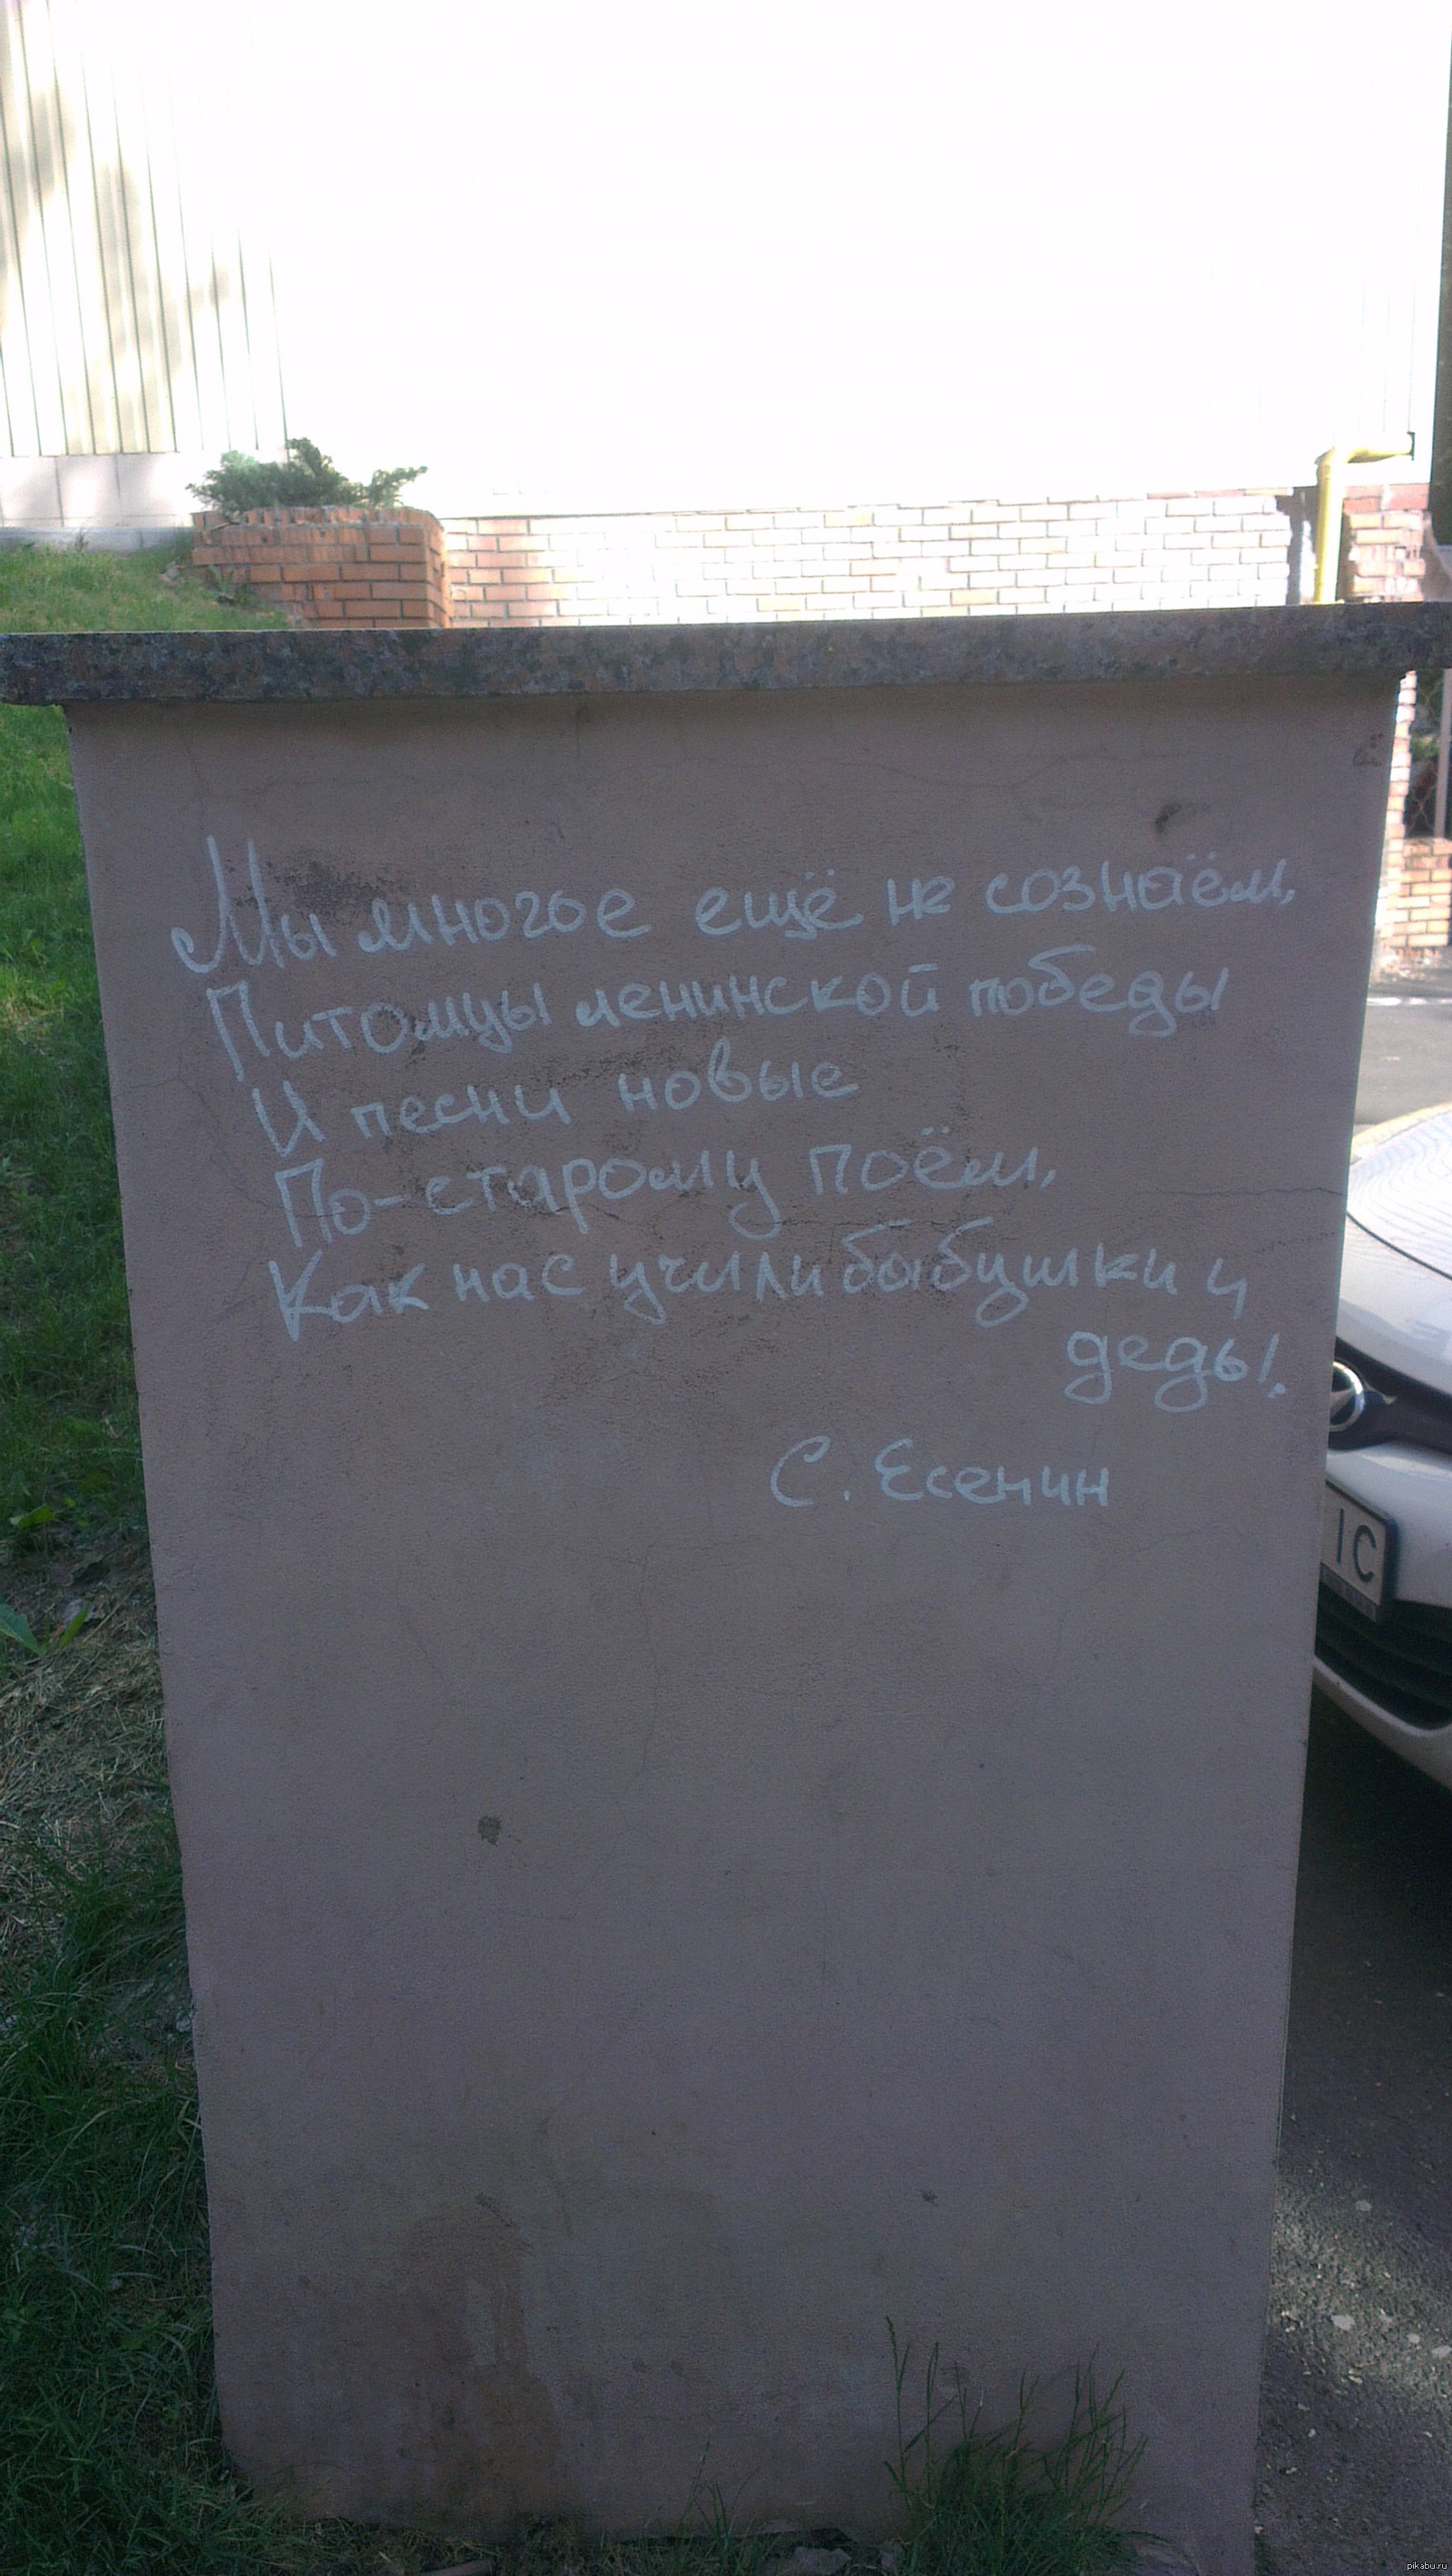 Мы многое ещё не сознаём,
Питомцы ленинской победы
И песни новые
По-старому поём,
Как нас учили бабушки и
деды!
С. Есенин
IC
pikabu.ru